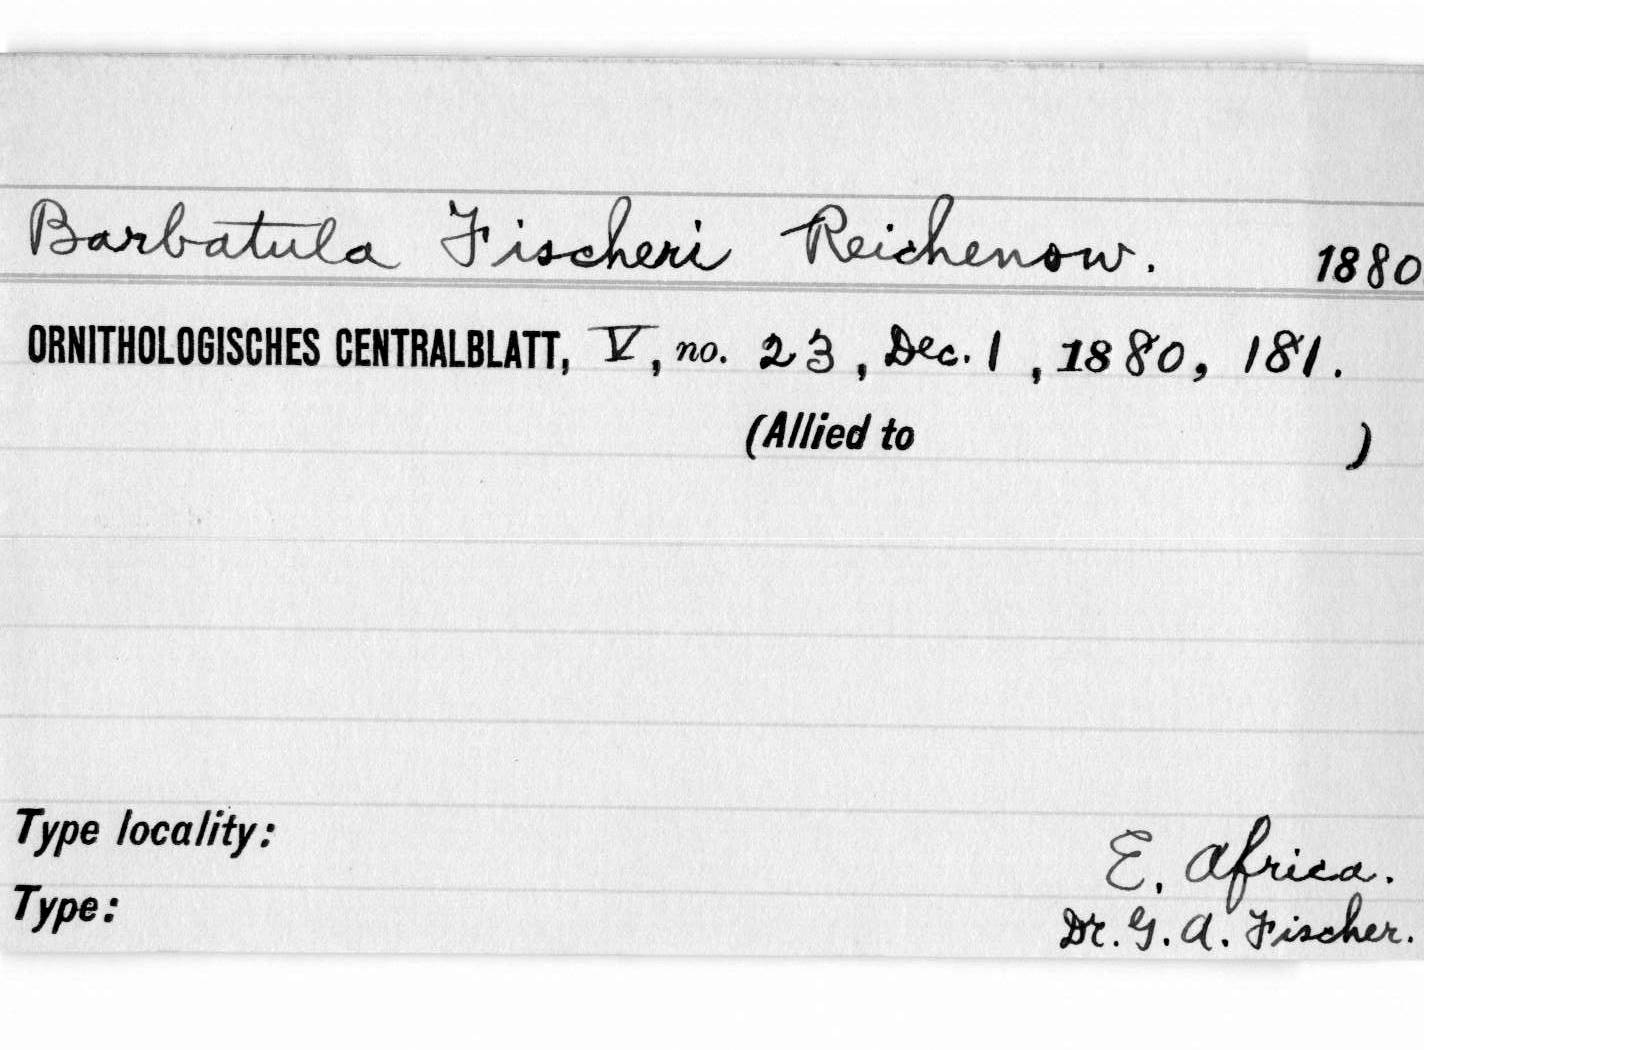 Barbatula Fischeri Reichenow. 1880
ORNITHOLOGISCHES CENTRALBLATT, V, no. 23, Dec. 1, 1880, 181.
(Allied to )
Type locality: E. Africa.
Type: Dr. G. A. Fischer.